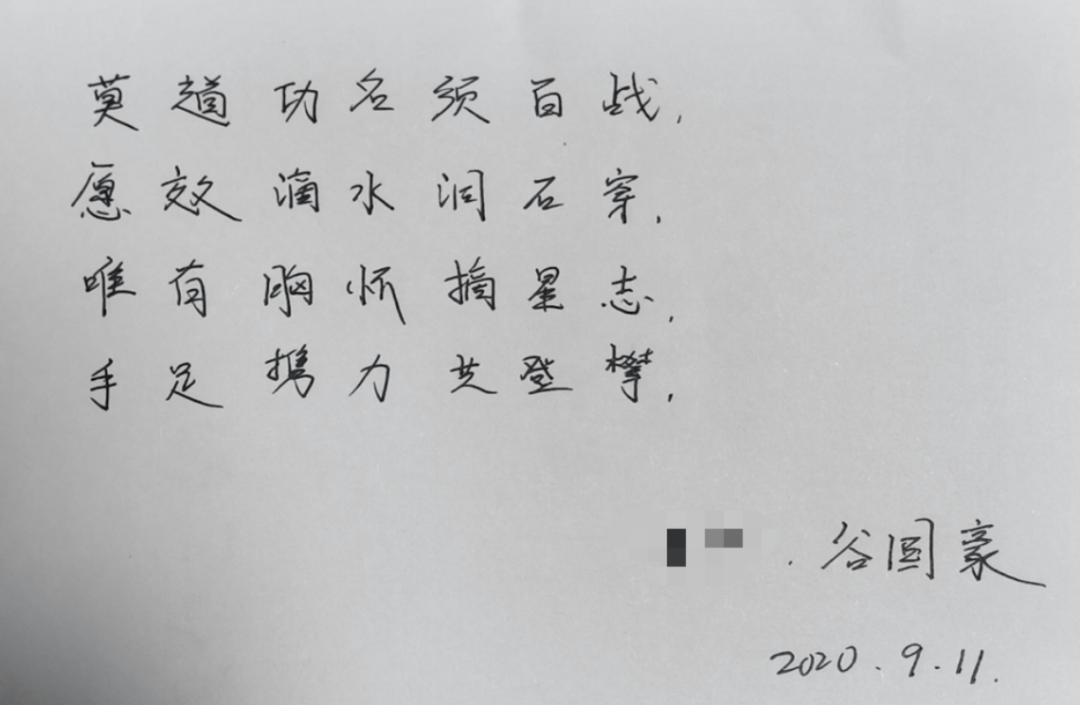 莫道功名须百战,
愿效滴水润石穿,
唯有胸怀摘星志,
手足携力共登攀,
. 谷国豪
2020.9.11.